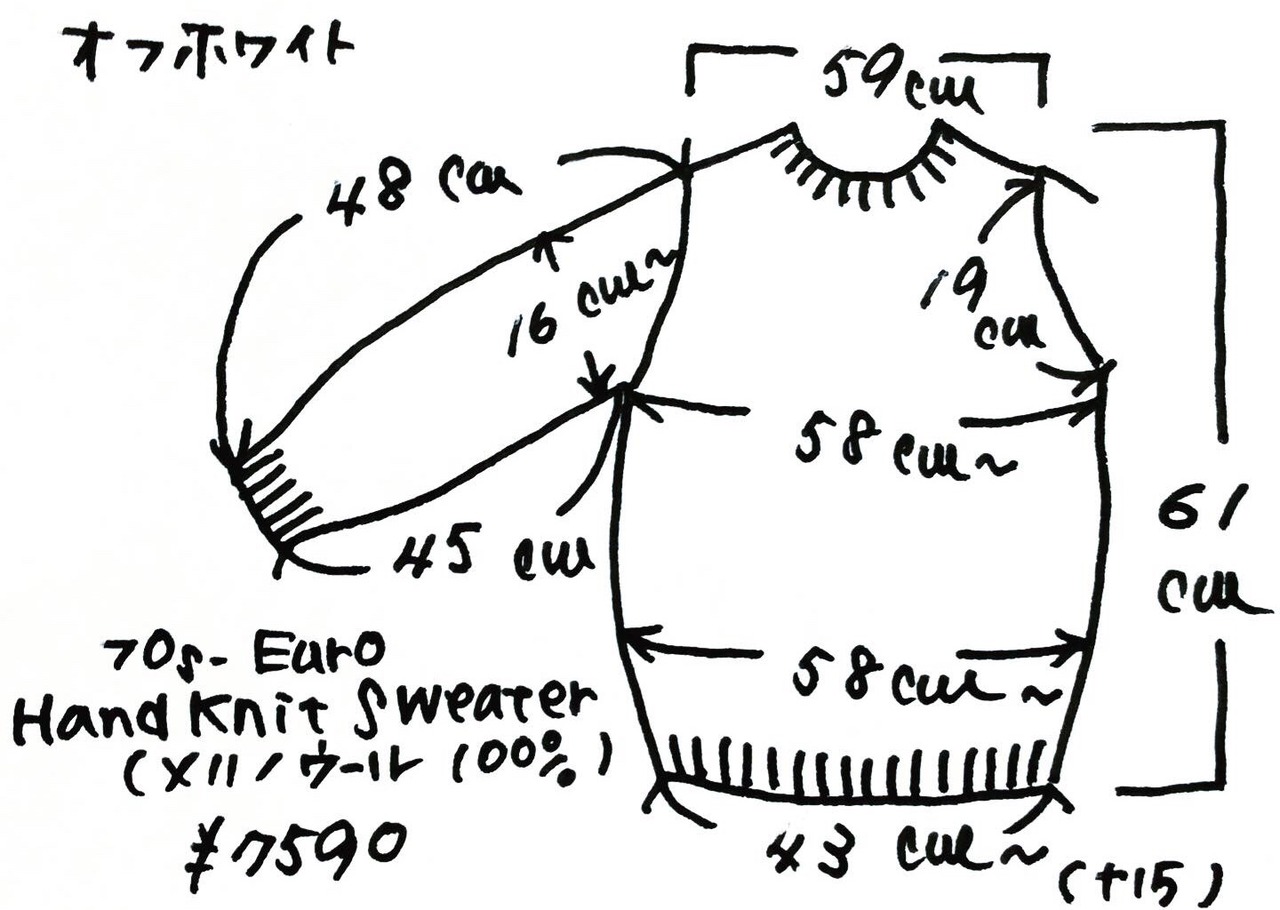 オフホワイト
59cm
48 cm
16 cm~
19
cm
58 cm~
61
cm
45 cm
58cm~
70s- Euro
Hand Knit Sweater
(メリノウール 100%)
¥7590
43 cm~
(+15)